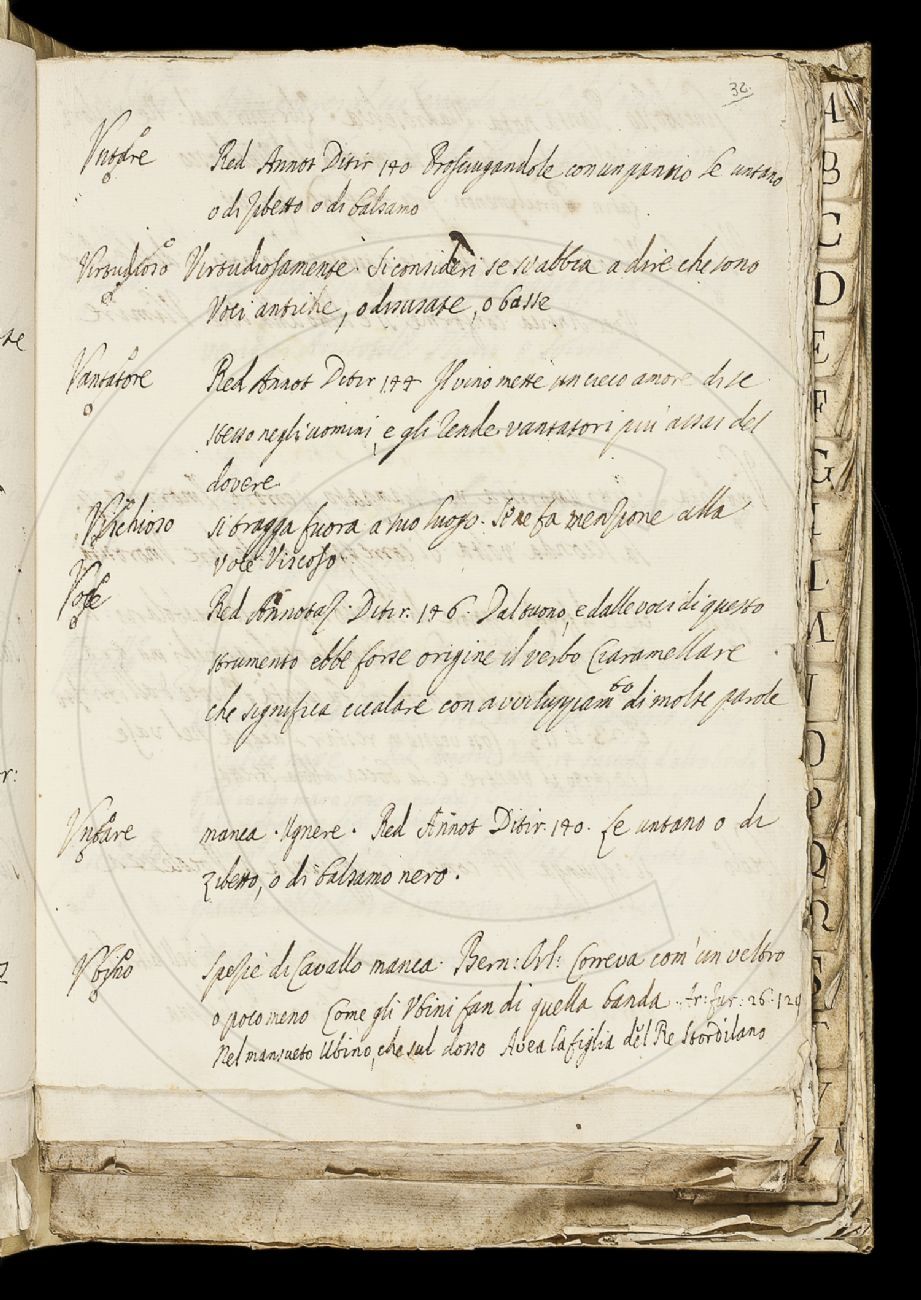 32.
Untare Red Annot Ditir 140 Prosciugandole con un panno le untano
o di Zibetto o di balsamo
Virtudioso Virtudiosamente. Si consideri se s'abbia a dire che sono
Voci antiche, o disusate, o basse
Vantatore Red Annot Ditir 144 Il vino mette un cieco amore di se
stesso negli uomini, e gli rende vantatori piu' assai del
dovere
Vischioso si tragga fuora a suo luogo. Se ne fa menzione alla
voce Viscoso
Voce Red Annotaz. Ditir. 146. Dal suono, e dalle voci di questo
strumento ebbe forse origine il verbo Ciaramellare
che significa cicalare con avviluppiamto di molte parole
Untare manca. Ugnere. Red Annot Ditir. 140. Le untano o di
Zibetto, o di balsamo nero.
Ubino spezie di Cavallo manca. Bern: Orl: Correva com' un veltro
o poco meno Come gli Ubini fan di quella banda. Ar: fur. 26. 129
Nel mansueto Ubino, che sul dosso Avea la figlia del Re Stordilano
A
B
C
D
E
F
G
I
L
M
O
P
Q
R
S
T
V
Z